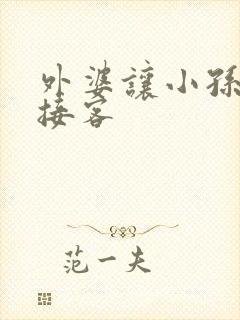 外婆讓小孫
接客
范一夫